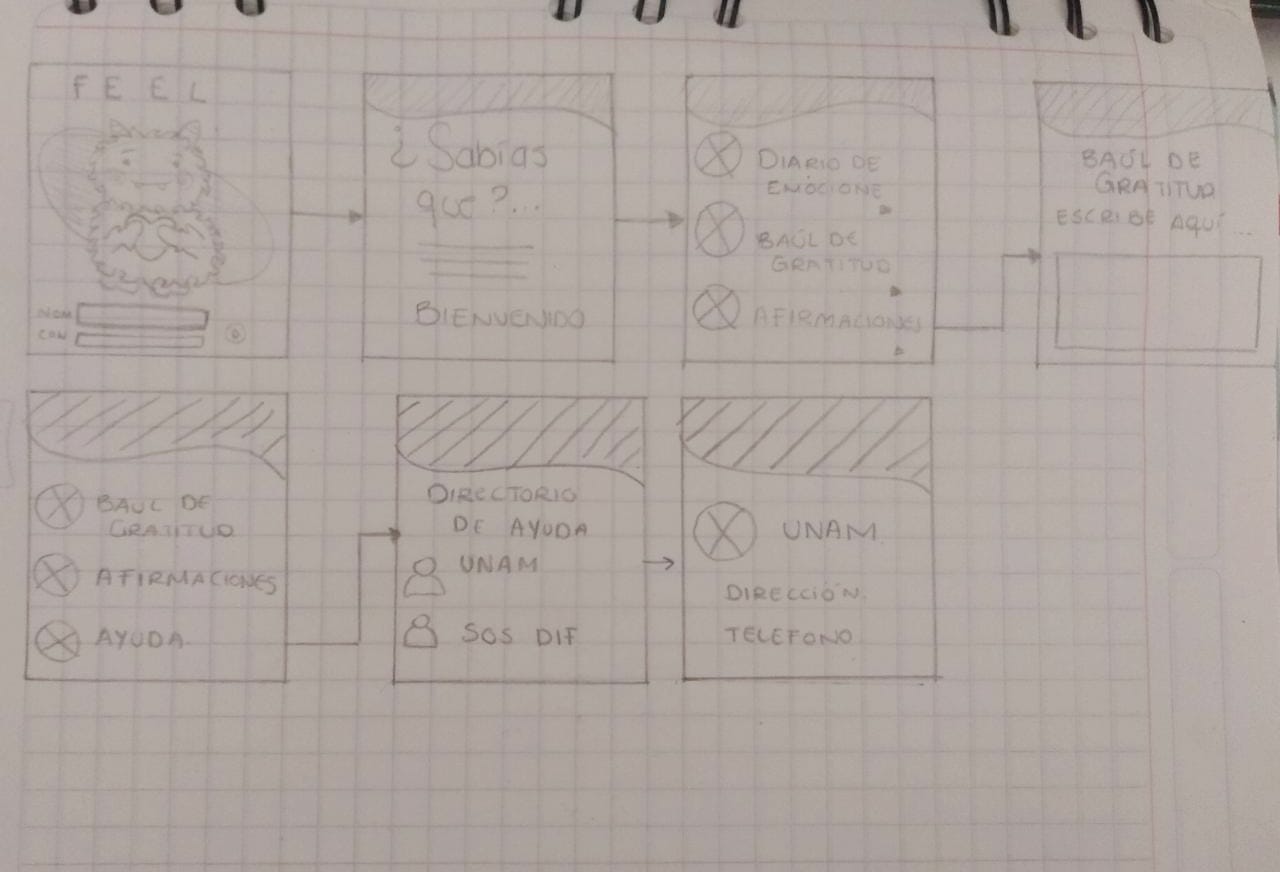 FEEL
NOM
CON
¿Sabías
que?...
BIENVENIDO
DIARIO DE
EMOCIONE
BAÚL DE
GRATITUD
AFIRMACIONES
BAÚL DE
GRATITUD
ESCRIBE AQUÍ...
BAUL DE
GRATITUD
AFIRMACIONES
AYUDA
DIRECTORIO
DE AYUDA
UNAM
SOS DIF
UNAM.
DIRECCIÓN.
TELEFONO